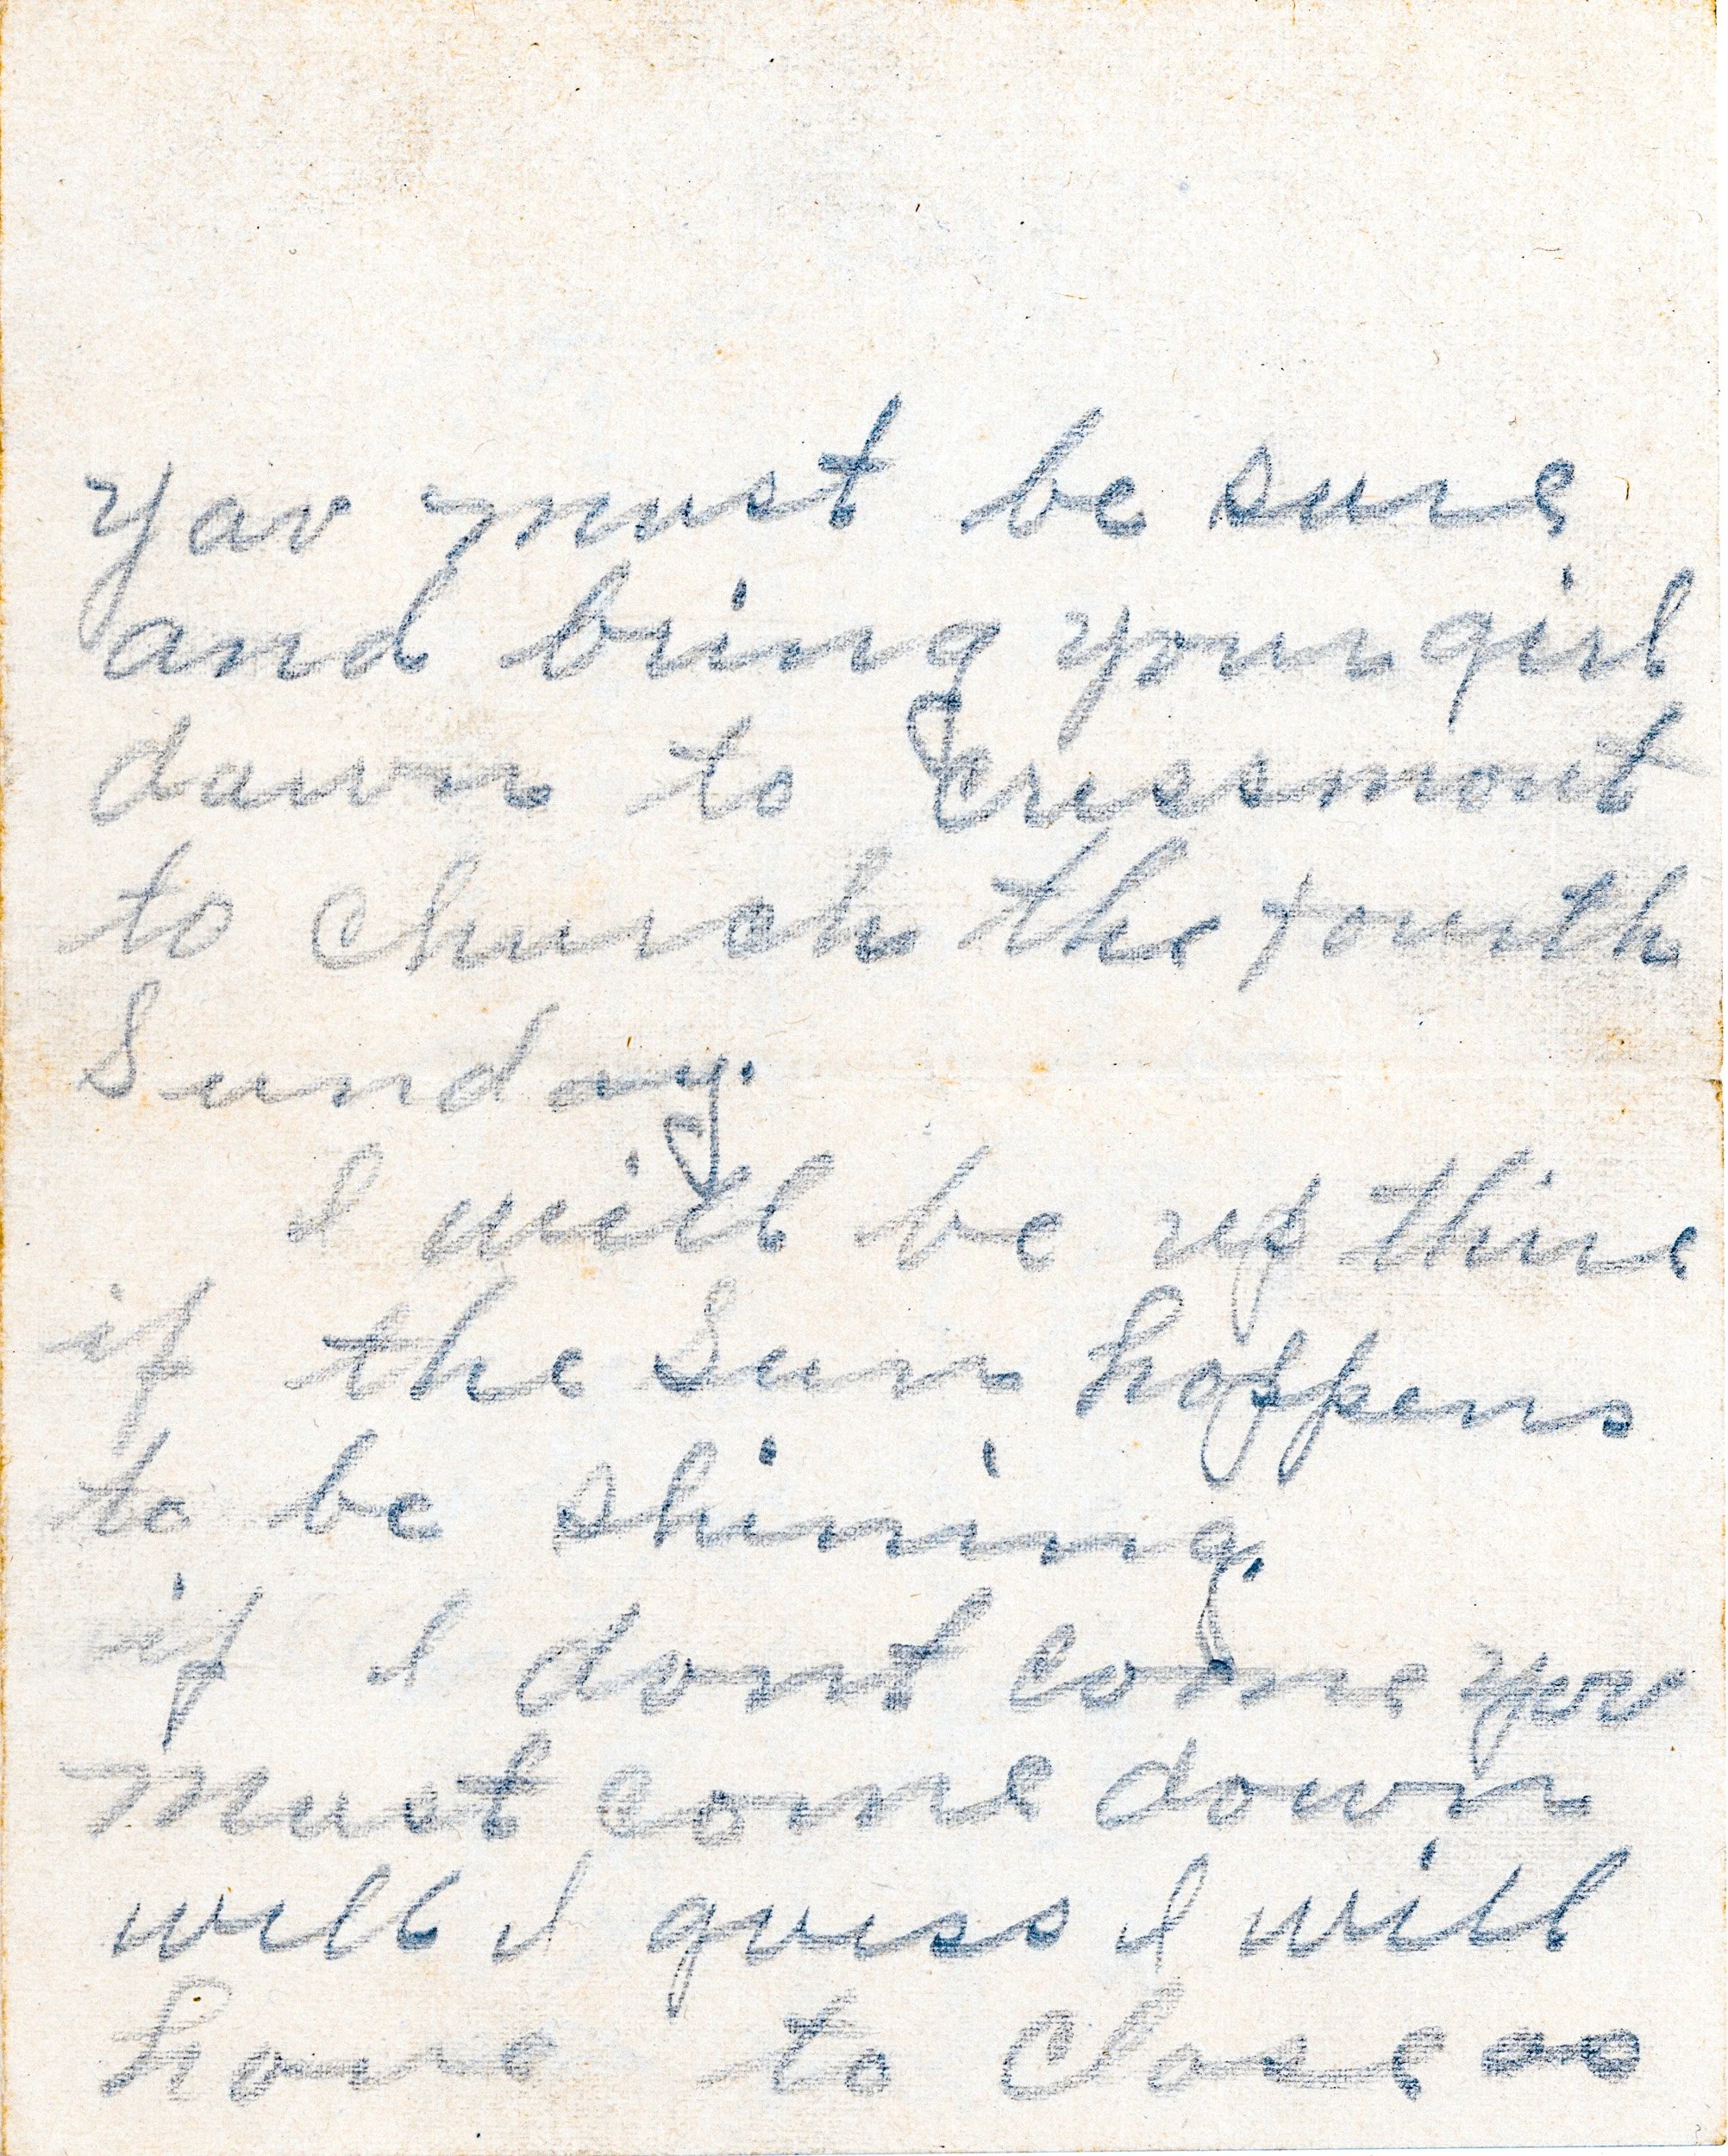 yov must be sure
and bring your girl
down to Cressmont
to church the fourth
Sunday.
I will be up thire
if the Sun happens
to be shining.
if I dont come yov
must come down
will I gviss I will
have to close as